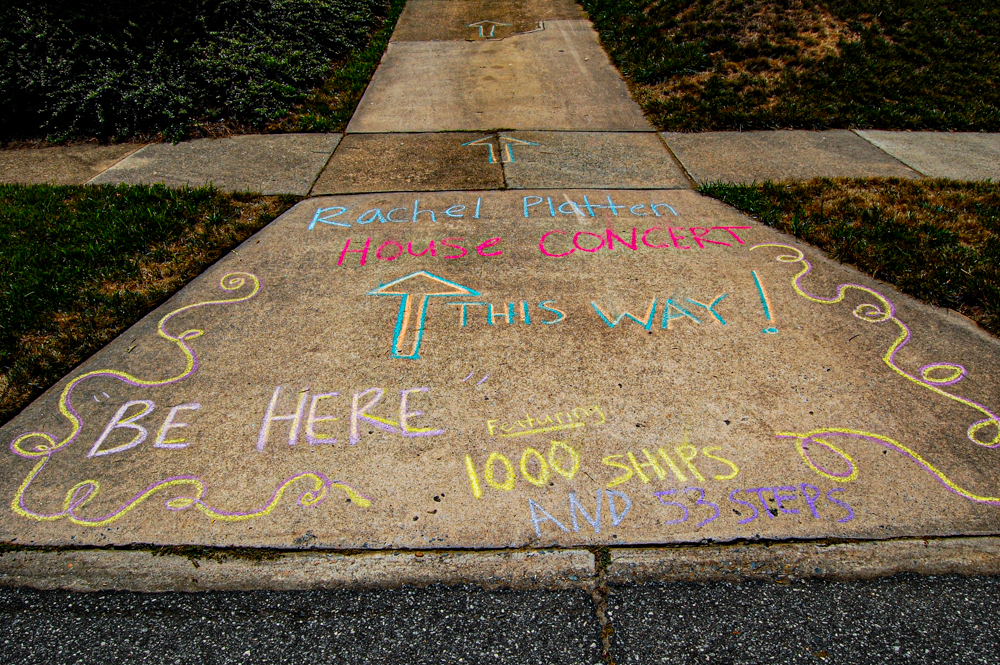 Rachel Platten
House CONCERT
THIS WAY!
"BE HERE"
Featuring
1000 SHIPS
AND 53 STEPS